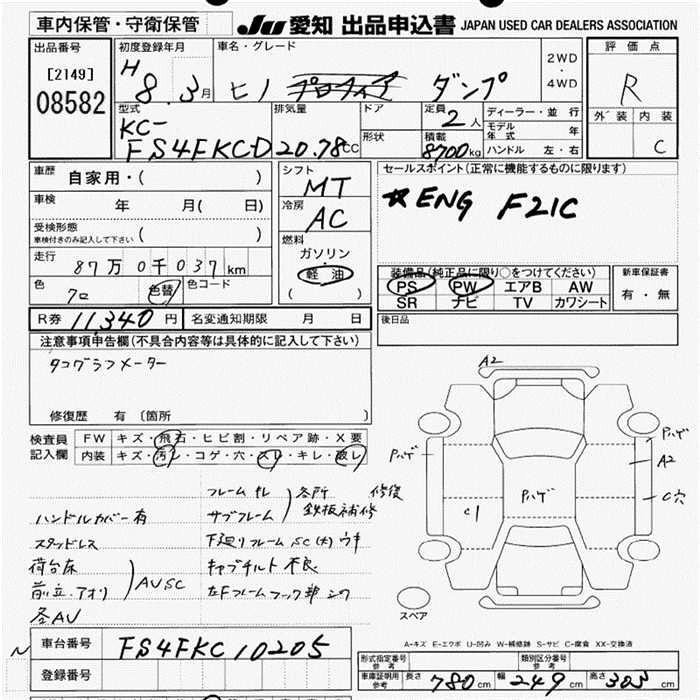 車内保管・守衛保管
JU 愛知 出品申込書 JAPAN USED CAR DEALERS ASSOCIATION
出品番号
[2149]
08582
初度登録年月
H 8.3月
車名・グレード
ヒノ ダンプ
2WD
・
4WD
評価点
R
外装 内装
C
型式
KC-
FS4FKCD
排気量
20.78CC
ドア
形状
定員
2人
積載
8700kg
ディーラー・並行
モデル年式 年
ハンドル 左・右
車歴
自家用・( )
車検 年 月( 日)
受検形態
車検付きのみ記入して下さい ( )
走行
87万0千037km
色
クロ
色替
色コード
シフト
MT
冷房
AC
燃料
ガソリン・
軽油
( )
セールスポイント(正常に機能するものに限ります)
☆ENG F21C
装備品(純正品に限り○をつけてください)
PS PW エアB AW
SR ナビ TV カワシート
新車保証書
有・無
R券 11,340円
名変通知期限 月 日
後日品
注意事項申告欄(不具合内容等は具体的に記入して下さい)
タコグラフメーター
修復歴 有 〔箇所
検査員
記入欄
FW キズ・飛石・ヒビ割・リペア跡・X要
内装 キズ・汚レ・コゲ・穴・スレ・キレ・破レ
ハンドルカバー有
スタッドレス
荷台床
前立.アオリ
AUSC
各AU
フレーム サレ
サブフレーム
各所 修復
鉄板補修
下廻りフレームSC(大)ウキ
キャブチルト不良
左Fフレームフック部
A2
Pハゲ
Pハゲ
Pハゲ
A2
C穴
C1
スペア
A-キズ E-エクボ U-凹み W-補修跡 S-サビ C-腐食 XX-交換済
車台番号
FS4FKC10205
登録番号
型式指定番号
参考
類別区分番号
参考
車庫証明用
参考
長さ 780cm 幅 249cm 高さ 303cm